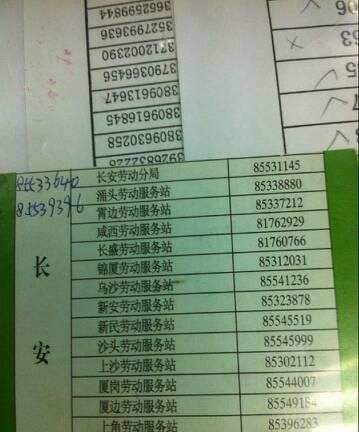 3652599844
3527993636
3712002390
3790366456
3809613647
3809616845
3809630258
85533640
85539396
长安
长安劳动分局 85531145
涌头劳动服务站 85338880
霄边劳动服务站 85337212
咸西劳动服务站 81762929
长盛劳动服务站 81760766
锦厦劳动服务站 85312031
乌沙劳动服务站 85541236
新安劳动服务站 85323878
新民劳动服务站 85545519
沙头劳动服务站 85545999
上沙劳动服务站 85302112
厦岗劳动服务站 85544007
厦边劳动服务站 85549184
上角劳动服务站 85396283